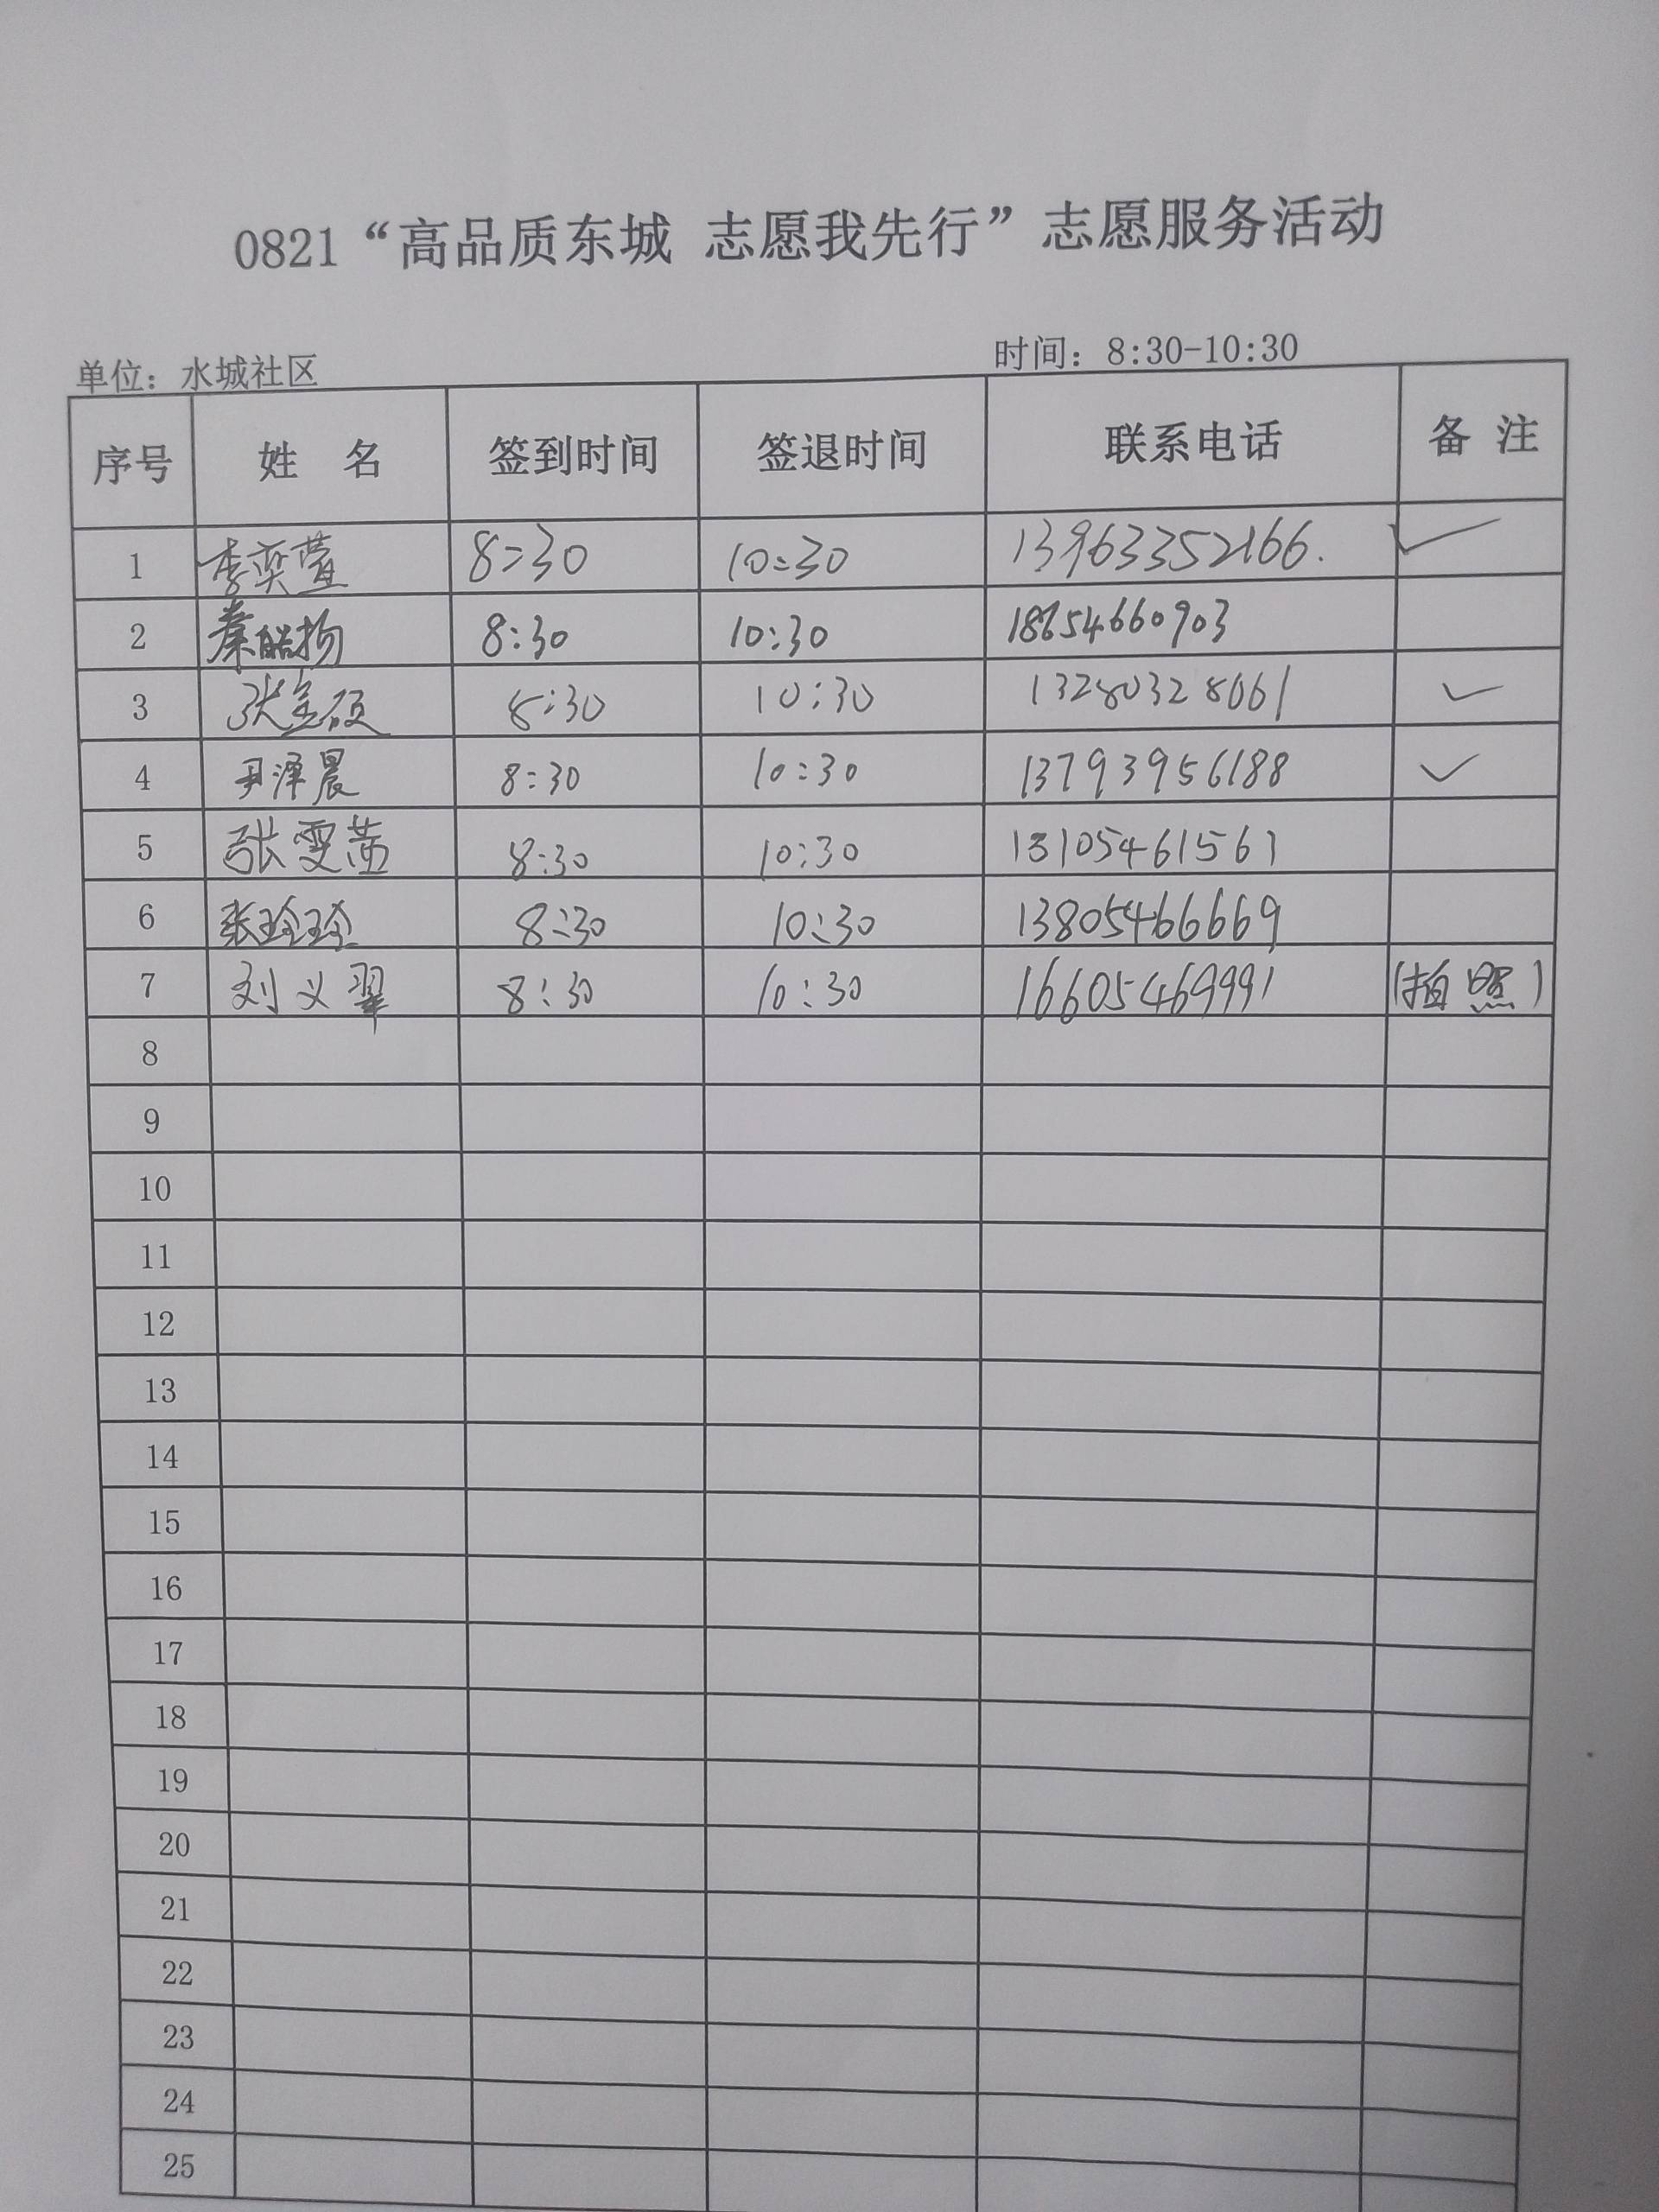 0821“高品质东城 志愿我先行”志愿服务活动
单位：水城社区 时间：8:30-10:30
序号 姓 名 签到时间 签退时间 联系电话 备 注
1 李奕萱 8:30 10:30 13963352166. ✓
2 秦皓扬 8:30 10:30 18654660903
3 张金硕 8:30 10:30 13280328061 ✓
4 尹泽晨 8:30 10:30 13793956188 ✓
5 张雯茜 8:30 10:30 13105461561
6 张玲玲 8:30 10:30 13805466669
7 刘义翠 8:30 10:30 16605469991 (拍照)
8
9
10
11
12
13
14
15
16
17
18
19
20
21
22
23
24
25